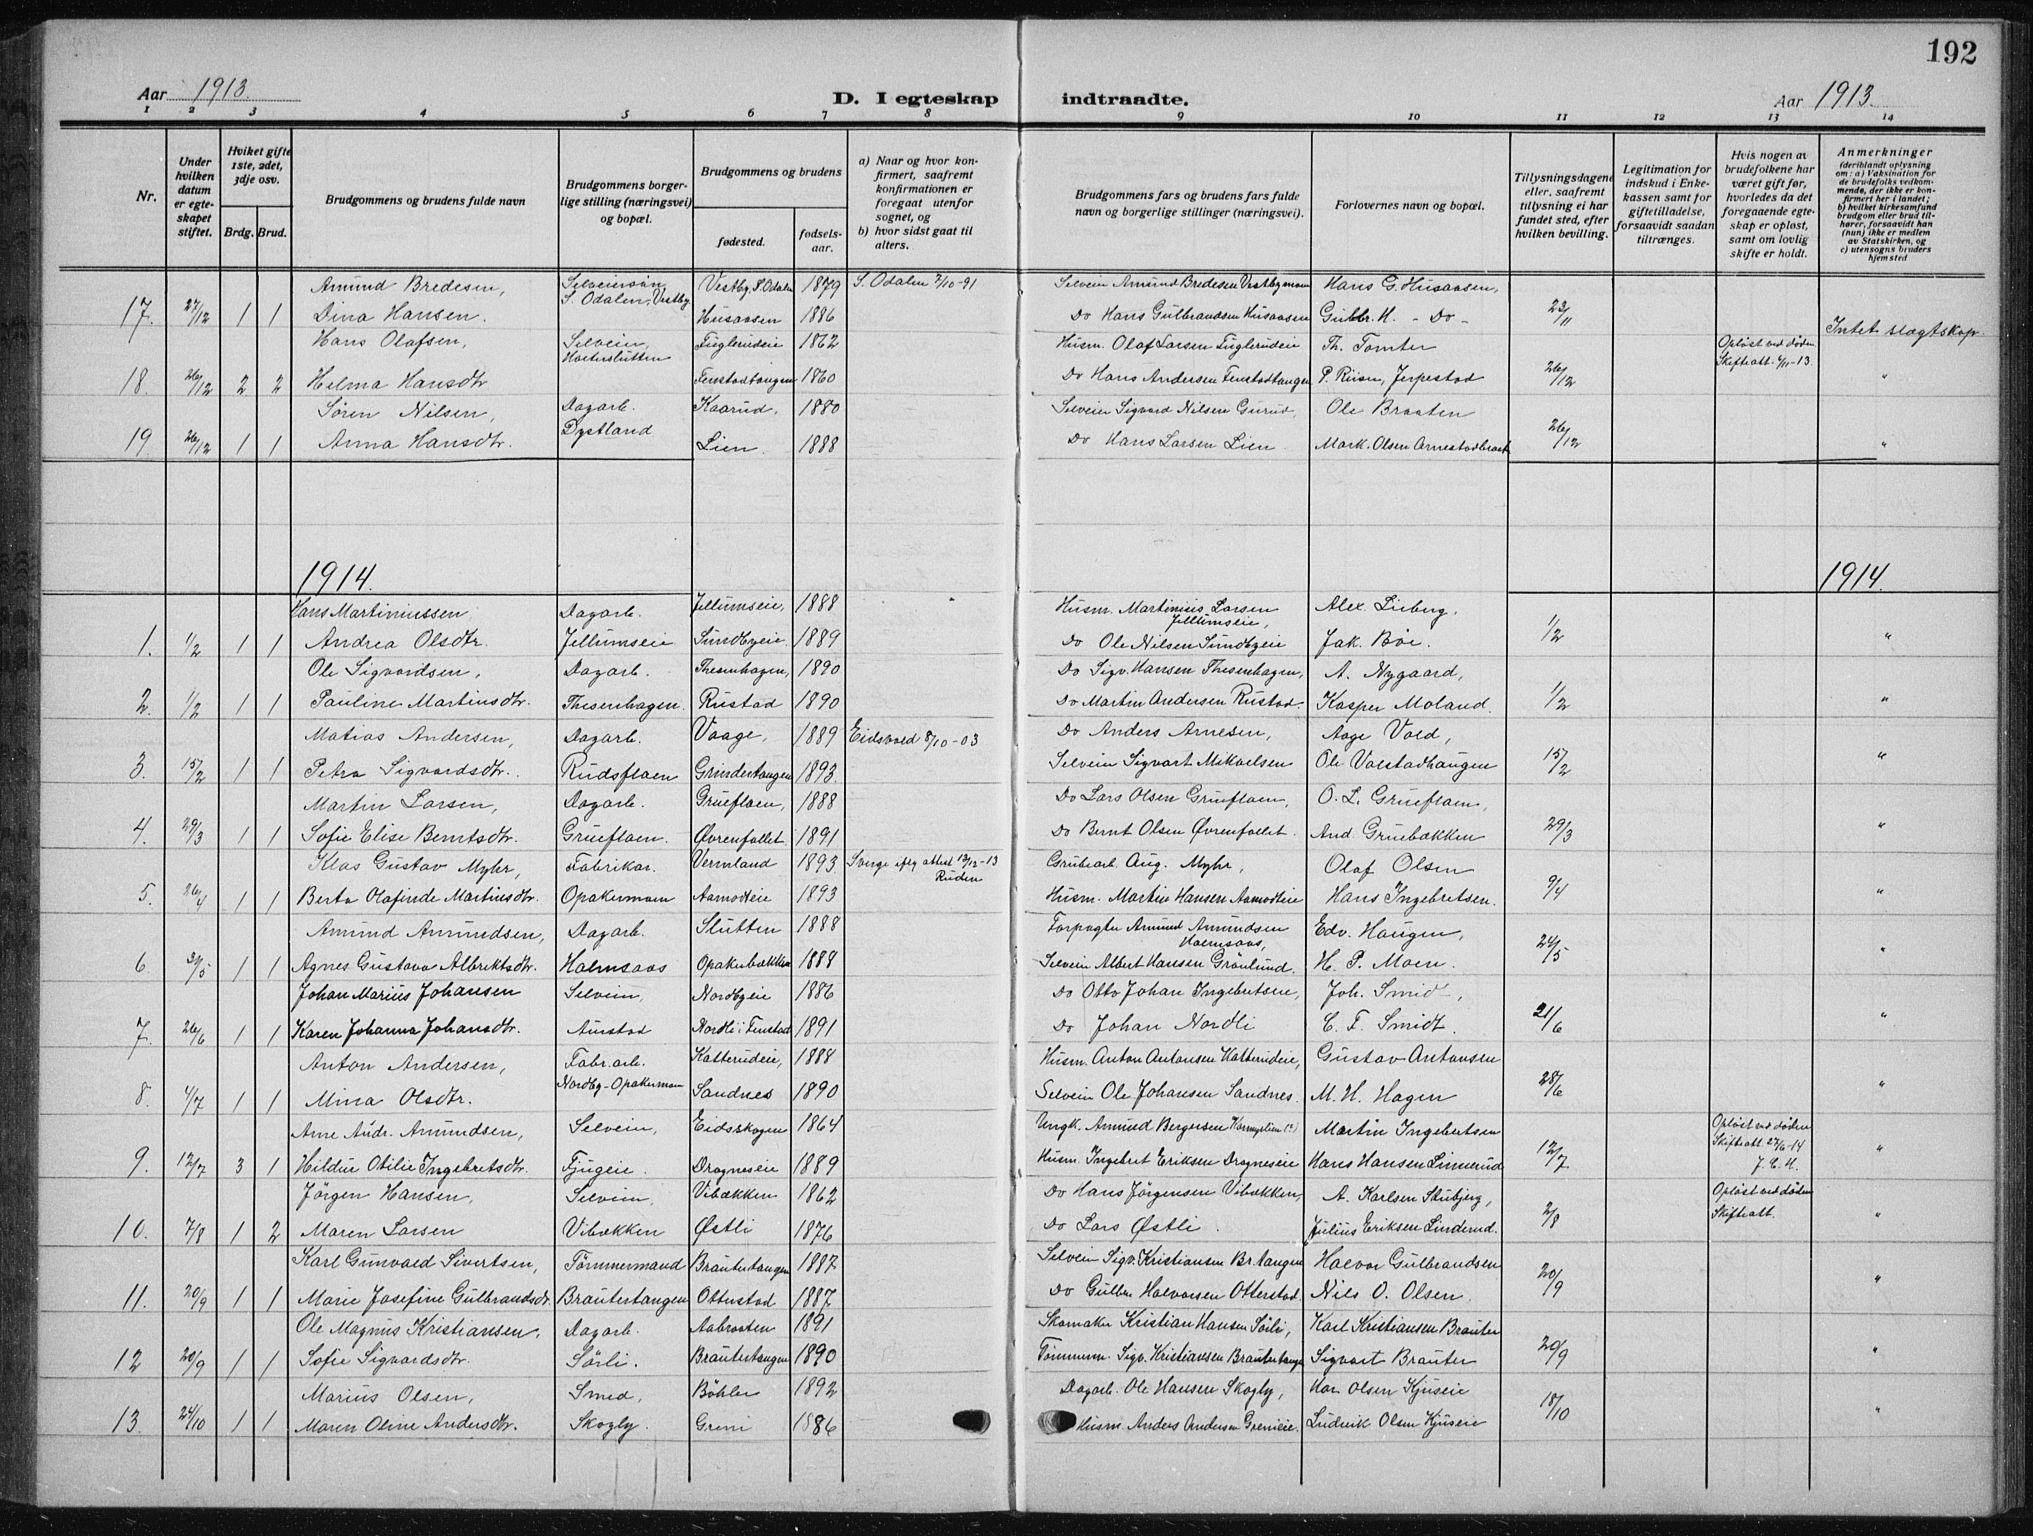 192
Aar 1913.
D. I egteskap indtraadte.
Aar 1913.
1 2 3 4 5 6 7 8 9 10 11 12 13 14
Nr.
Under hvilken datum er egteskapet stiftet.
Hvilket gifte 1ste, 2det, 3dje osv.
Brdg. Brud.
Brudgommens og brudens fulde navn
Brudgommens borgerlige stilling (næringsvei) og bopæl.
Brudgommens og brudens
fødested.
fødselsaar.
a) Naar og hvor konfirmert, saafremt konfirmationen er foregaat utenfor sognet, og
b) hvor sidst gaat til alters.
Brudgommens fars og brudens fars fulde navn og borgerlige stillinger (næringsvei).
Forlovernes navn og bopæl.
Tillysningsdagene eller, saafremt tillysning ei har fundet sted, efter hvilken bevilling.
Legitimation for indskud i Enkekassen samt for giftetilladelse, forsaavidt saadan tiltrænges.
Hvis nogen av brudefolkene har været gift før, hvorledes da det foregaaende egteskap er opløst, samt om lovlig skifte er holdt.
Anmerkninger (deriblandt oplysning om: a) Vaksination for de brudefolks vedkommende, der ikke er konfirmert her i landet; b) hvilket kirkesamfund brudgom eller brud tilhører, forsaavidt han (hun) ikke er medlem av Statskirken, og c) utensogns bruders hjemsted
Amund Bredesen, Selveiersøn, S. Odalen, Vestby Vestby, S. Odalen 1879 S. Odalen 2/10-91 Selveier Amund Bredesen Vestbymoen Hans G. Husaasen,
17. 27/12 1 1 Dina Hansen. Husaasen 1886 Do Hans Gulbrandsen Husaasen Gulbr. H. - Do - 23/11
Hans Olafsen, Selveier, Fuglerudeie 1862 Husm. Olaf Larsen Fuglerudeie Th. Tomter Opløst ved døden Skifteatt. 6/11-13. Intet slægtskap.
18. 26/12 2 2 Helma Hansdtr Fenstadtangen 1860 Do Hans Andersen Fenstadtangen P. Riisen, Jerpestad 26/12 "
Søren Nilsen, Dagarb. Kaarud, 1880 Selveier Sigvard Nilsen Gurud, Ole Braaten
19 26/12 1 1 Anna Hansdtr. Dystland Lien. 1888 Do Hans Larsen Lien Mark. Olsen Arnestadbraat 26/12 "
1914. 1914.
Hans Martiniussen Dagarb. Jellumseie, 1888 Husm. Martinius Larsen Jellumseie, Alex. Lieberg.
1. 1/2 1 1 Andrea Olsdtr. Jellumseie Sundbyeie 1889 Do Ole Nilsen Sundbyeie Jak. Bøe. 1/2 "
Ole Sigvardsen, Dagarb. Thesenhagen, 1890 Do Sigv. Hansen Thesenhagen, A. Nygaard,
2. 1/2 1 1 Pauline Martinsdtr. Thesenhagen. Rustad 1890 Do Martin Andersen Rustad Kasper Moland. 1/2 "
Matias Andersen, Dagarb. Vaage, 1889 Eidsvold 8/10-03 Do Anders Arnesen, Aage Vold,
3. 15/2 1 1 Petra Sigvardsdtr. Rudsflaen Grindertangen 1893 Selveier Sigvart Mikaelsen Ole Volstadhaugen 15/2 "
Martin Larsen, Dagarb. Grueflaen, 1888 Do Lars Olsen Grueflaen, O. L. Grueflaen,
4. 29/3 1 1 Sofie Elise Berntsdtr. Grueflaen. Øvrenfallet. 1891 Do Bernt Olsen Øvrenfallet. And. Gruebækken 29/3 "
Klas Gustav Myhr, Fabrikar. Vermland 1893 Sverige eflg. attest 12/12-13 Ruden Grubearb. Aug. Myhr, Olaf Olsen
5. 26/4 1 1 Berta Olafinde Martinsdtr. Opakermoen Aamodteie 1893 Husm. Martin Hansen Aamodteie Hans Ingebretsen. 9/4 "
Amund Amundsen, Dagarb. Slutten 1888 Forpagter Amund Amundsen Holmsaas, Edv. Haugen,
6 31/5 1 1 Agnes Gustava Albrektsdtr. Holmsaas Opakerbækken 1888 Selveier Albert Hansen Grönlund. H. P. Moen. 24/5 "
Johan Marius Johansen Selveier, Nordbyeie 1886 Do Otto Johan Ingebretsen, Joh. Smidt,
7. 26/6 1 1 Karen Johanna Johansdtr. Aurstad Nordli i Fenstad 1891 Do Johan Nordli C. F. Smidt. 21/6 "
Anton Andersen, Fabr.arb. Katterudeie, 1888 Husm. Anton Antonsen Katterudeie, Gustav Antonsen
8. 4/7 1 1 Mina Olsdtr. Nordby-Opakermoen Sandnes 1890 Selveier Ole Johansen Sandnes. M. H. Hagen 28/6 "
Arne Andr. Amundsen, Selveier, Eidsskogen 1864 Ungk. Amund Bergersen Martin Ingebretsen Opløst ved døden Skifteatt. 27/6-14 J. C. H.
9. 12/7 3 1 Hildur Otilie Ingebretsdtr. Fjugeie. Dragneseie 1889 Husm. Ingebret Eriksen Dragneseie Hans Hansen Linnerud 12/7 "
Jörgen Hansen, Selveier, Vibækken 1862 Do Hans Jörgensen Vibækken, A. Karlsen Skibjerg, Opløst ved døden Skifteatt.
10. 7/8 1 2 Maren Larsen Vibækken Østli 1876 Do Lars Østli. Julius Eriksen Linderud. 2/8 "
Karl Gunvald Sivertsen, Tömmermand Brautertangen 1887 Selveier Sigv. Kristiansen Br.tangen Halvor Gulbrandsen
11. 20/9 1 1 Marie Josefine Gulbrandsdtr. Brautertangen Otterstad 1887 Do Gulbr. Halvorsen Otterstad. Nils O. Olsen. 20/9 "
Ole Magnus Kristiansen, Dagarb. Aabraaten 1891 Skomaker Kristian Hansen Sörli, Karl Kristiansen Brauter
12 20/9 1 1 Sofie Sigvardsdtr. Sörli. Brautertangen 1890 Tömmerm. Sigv. Kristiansen Brautertange Sigvart Brauter 20/9 "
Marius Olsen, Smed, Böhler 1892 Dagarb. Ole Hansen Skogby, Har. Olsen Kjuseie
13. 24/10 1 1 Maren Oline Andersdtr. Skogby. Greni 1886 Husm. Anders Andersen Grenieie. Ludevik Olsen Kjuseie 18/10 "